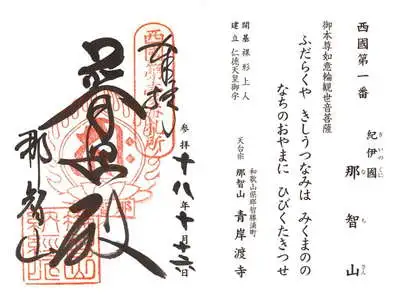 西國第一番
紀伊國 那智山
きいのくに なちさん
御本尊如意輪観世音菩薩
ふだらくや きしうつなみは みくまのの
なちのおやまに ひびくたきつせ
開基 裸形上人
建立 仁徳天皇御宇
和歌山県那智勝浦町
天台宗 那智山 青岸渡寺
参拝 十八年十月
奉拝
普照殿
那智山